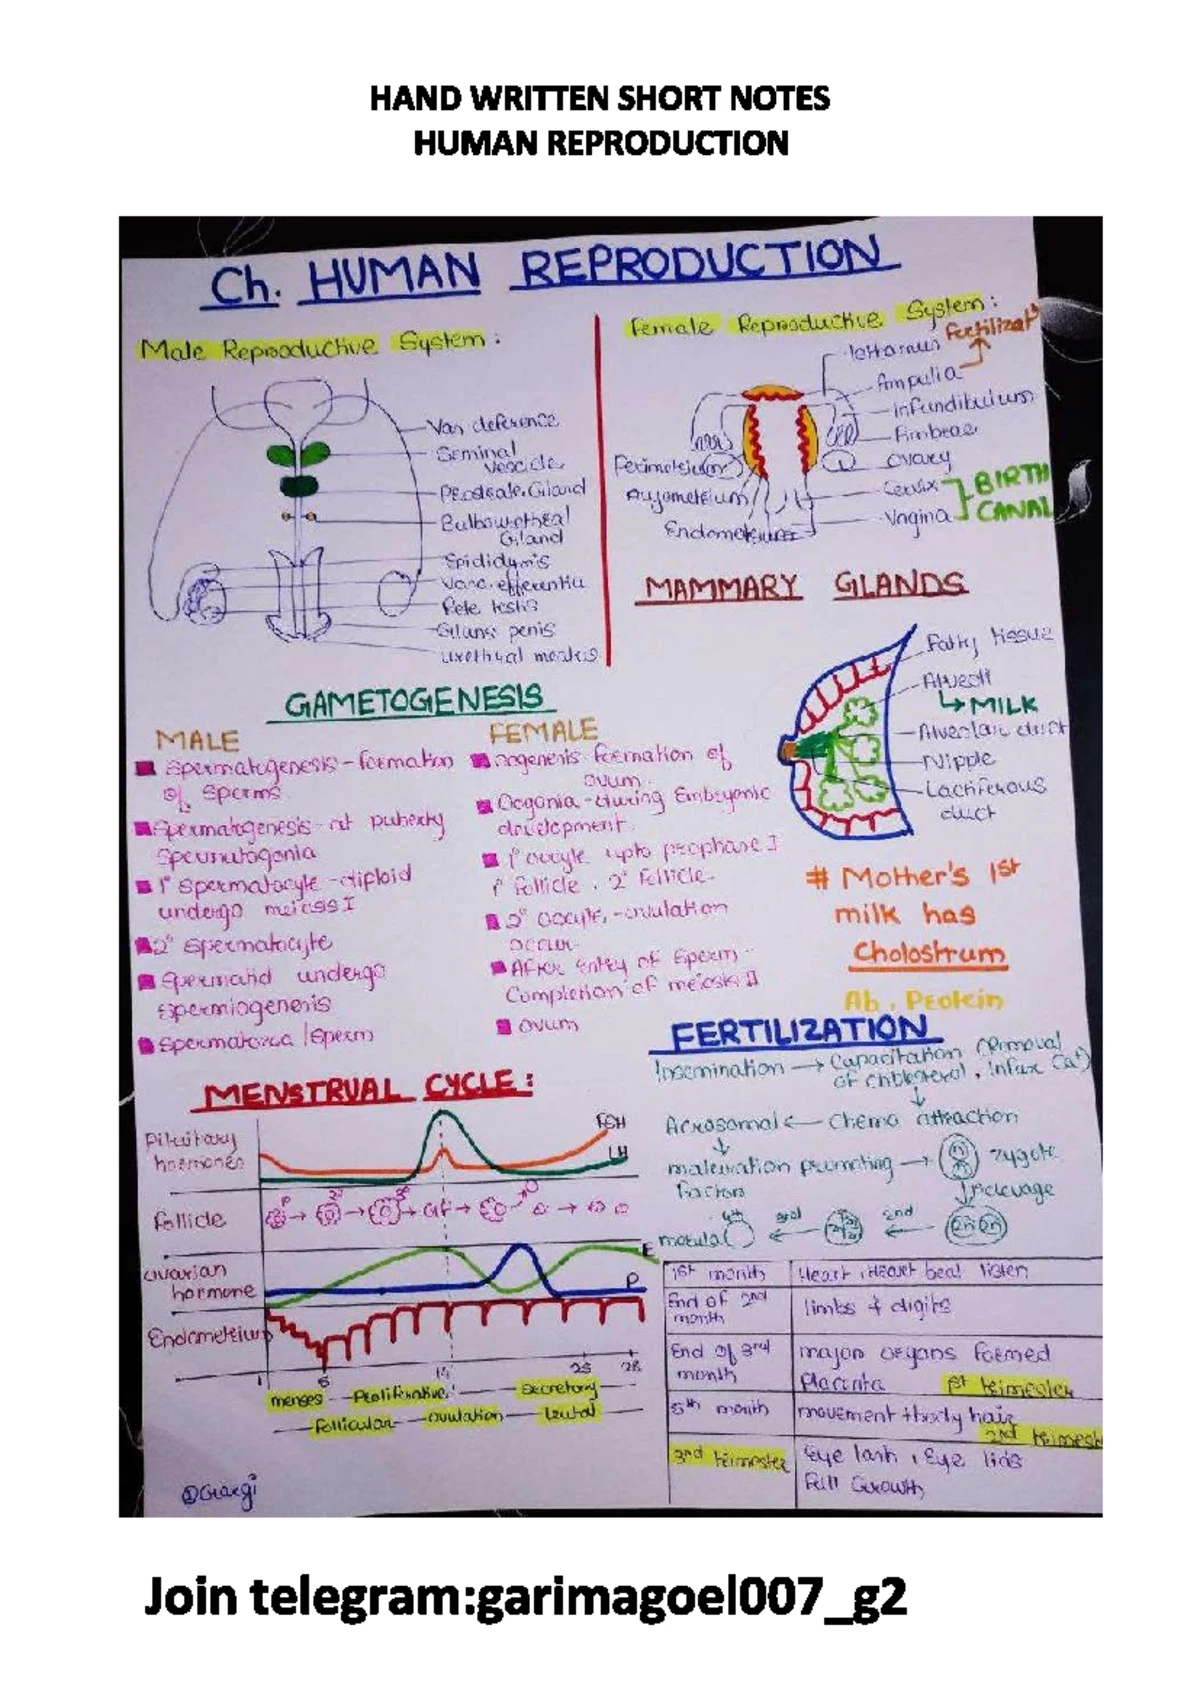 HAND WRITTEN SHORT NOTES
HUMAN REPRODUCTION
Ch. HUMAN REPRODUCTION
Male Reproductive System :
Vas deference
Seminal
Vescicle
Prostate Gland
Bulbourethral
Gland
Epididymis
Vasa efferentia
Rete testis
Glans penis
urethral meatus
Female Reproductive System :
Fertilizatn
Isthamus
Ampulla
Infundibulum
Fimbrae
Ovary
Cervix
Vagina
BIRTH
CANAL
Perimetrium
Myometrium
Endometrium
MAMMARY GLANDS
Fatty tissue
Alveoli
↳ MILK
Alveolar duct
Nipple
Lactiferous
duct
# Mother's 1st
milk has
Cholostrum
Ab, Protein
GAMETOGENESIS
MALE
Spermatogenesis - formation
of Sperms
Spermatogenesis - at puberty
Spermatogonia
1° Spermatocyte - diploid
undergo meiosis I
2° Spermatocyte
Spermatid undergo
Spermiogenesis
Spermatozoa / Sperm
FEMALE
oogenesis formation of
ovum.
Oogonia - during Embryonic
development.
1° oocyte upto prophase I
1° follicle, 2° follicle.
2° oocyte, - ovulation
occur
After entry of sperm -
Completion of meiosis II
ovum
FERTILIZATION
Insemination → Capacitation (Removal
of cholesterol, influx Ca+)
↓
Acrosomal ← Chemo attraction
↓
maturation promoting → zygote
factors
↓ cleavage
morula ← 3rd ← 2nd
4th
MENSTRUAL CYCLE :
Pituitary
hormones
FSH
LH
follicle
1° → 2° → 3° → GF →
ovarian
hormone
E
P
Endometrium
1 5 14 25 28
menses - Proliferative - Secretory
- follicular - ovulation - leutal -
1st month Heart, Heart beat listen
End of 2nd
month
limbs & digits
End of 3rd
month
major organs formed
Placenta 1st trimester
5th month movement + body hair
2nd trimest
3rd trimester Eye lash, Eye lids
Full Growth
@Gargi
Join telegram:garimagoel007_g2